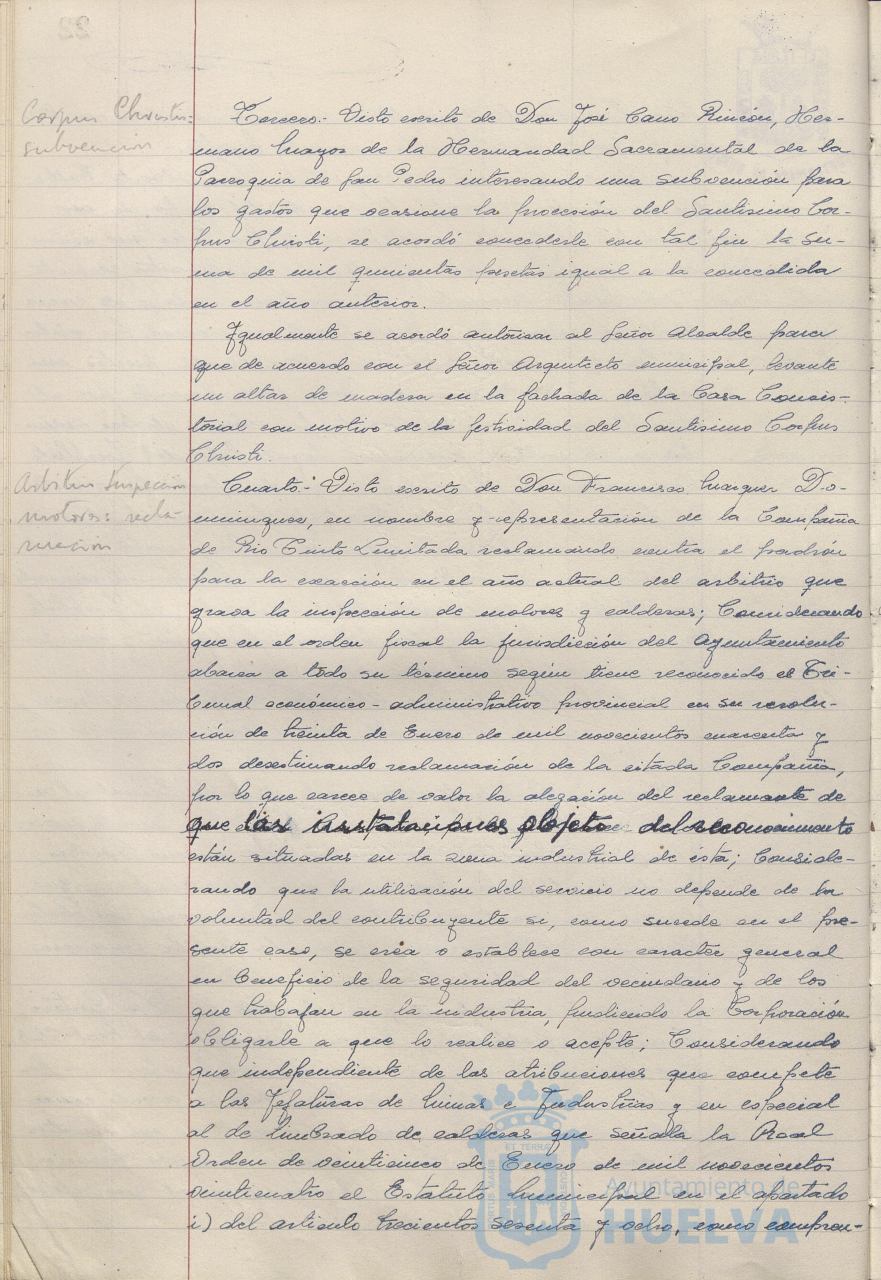 Corpus Christi:
subvención
Tercero.- Visto escrito de Don José Cano Rincón, Her-
mano Mayor de la Hermandad Sacramental de la
Parroquia de San Pedro interesando una subvención para
los gastos que ocasione la procesión del Santísimo Cor-
pus Christi, se acordó concederle con tal fin la su-
ma de mil quinientas pesetas igual a la concedida
en el año anterior.
Igualmente se acordó autorizar al Señor Alcalde para
que de acuerdo con el Señor Arquitecto municipal, levante
un altar de madera en la fachada de la Casa Consis-
torial con motivo de la festividad del Santísimo Corpus
Christi.
Arbitrio Inspección
motores: recla-
mación
Cuarto.- Visto escrito de Don Francisco Marquez Do-
minguez, en nombre y representación de la Compañía
de Rio Tinto Limitada reclamando contra el padrón
para la exacción en el año actual del arbitrio que
grava la inspección de motores y calderas; Considerando
que en el orden fiscal la jurisdicción del Ayuntamiento
abarca a todo su término según tiene reconocido el Tri-
bunal económico-administrativo provincial en su resolu-
ción de treinta de Enero de mil novecientos cuarenta y
dos desestimando reclamación de la citada Compañía,
por lo que carece de valor la alegación del reclamante de
que las instalaciones objeto del reconocimiento
están situadas en la zona industrial de ésta; Conside-
rando que la utilización del servicio no depende de la
voluntad del contribuyente si, como sucede en el pre-
sente caso, se crea o establece con caracter general
en beneficio de la seguridad del vecindario y de los
que trabajan en la industria, pudiendo la Corporación
obligarle a que lo realice o acepte; Considerando
que independiente de las atribuciones que compete
a las Jefaturas de Minas e Industrias y en especial
al de timbrado de calderas que señala la Real
Orden de veinticinco de Enero de mil novecientos
veinticuatro el Estatuto Municipal en el apartado
i) del artículo trecientos sesenta y ocho, como compren-
Ayuntamiento de
HUELVA